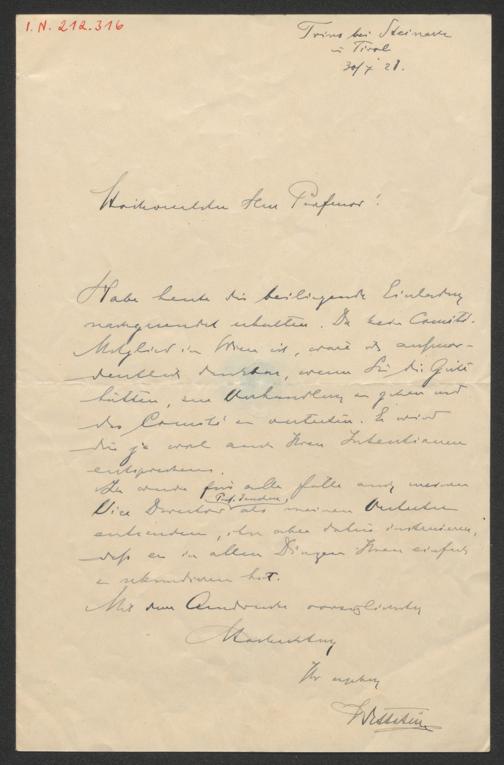 I.N. 212.316
Trins bei Steinach
in Tirol
30/X 28.
Hochverehrter Herr Professor!
Habe heute die beiliegende Einladung
nachgesendet erhalten. Da kein Comité-
Mitglied in Wien ist, wäre ich ausseror-
dentlich dankbar, wenn Sie die Güte
hätten, zur Verhandlung zu gehen und
das Comité zu vertreten. Es wird
dies ja wol auch Ihren Intentionen
entsprechen.
Ich werde für alle Fälle auch meinen
Vice Director Prof. Janchen, als meinen Vertreter
entsenden, ihn aber dahin instruieren,
daß er in allen Dingen Ihnen einfach
zu sekundieren hat.
Mit dem Ausdrucke vorzüglichster
Hochachtung
Ihr ergeben
Wettstein